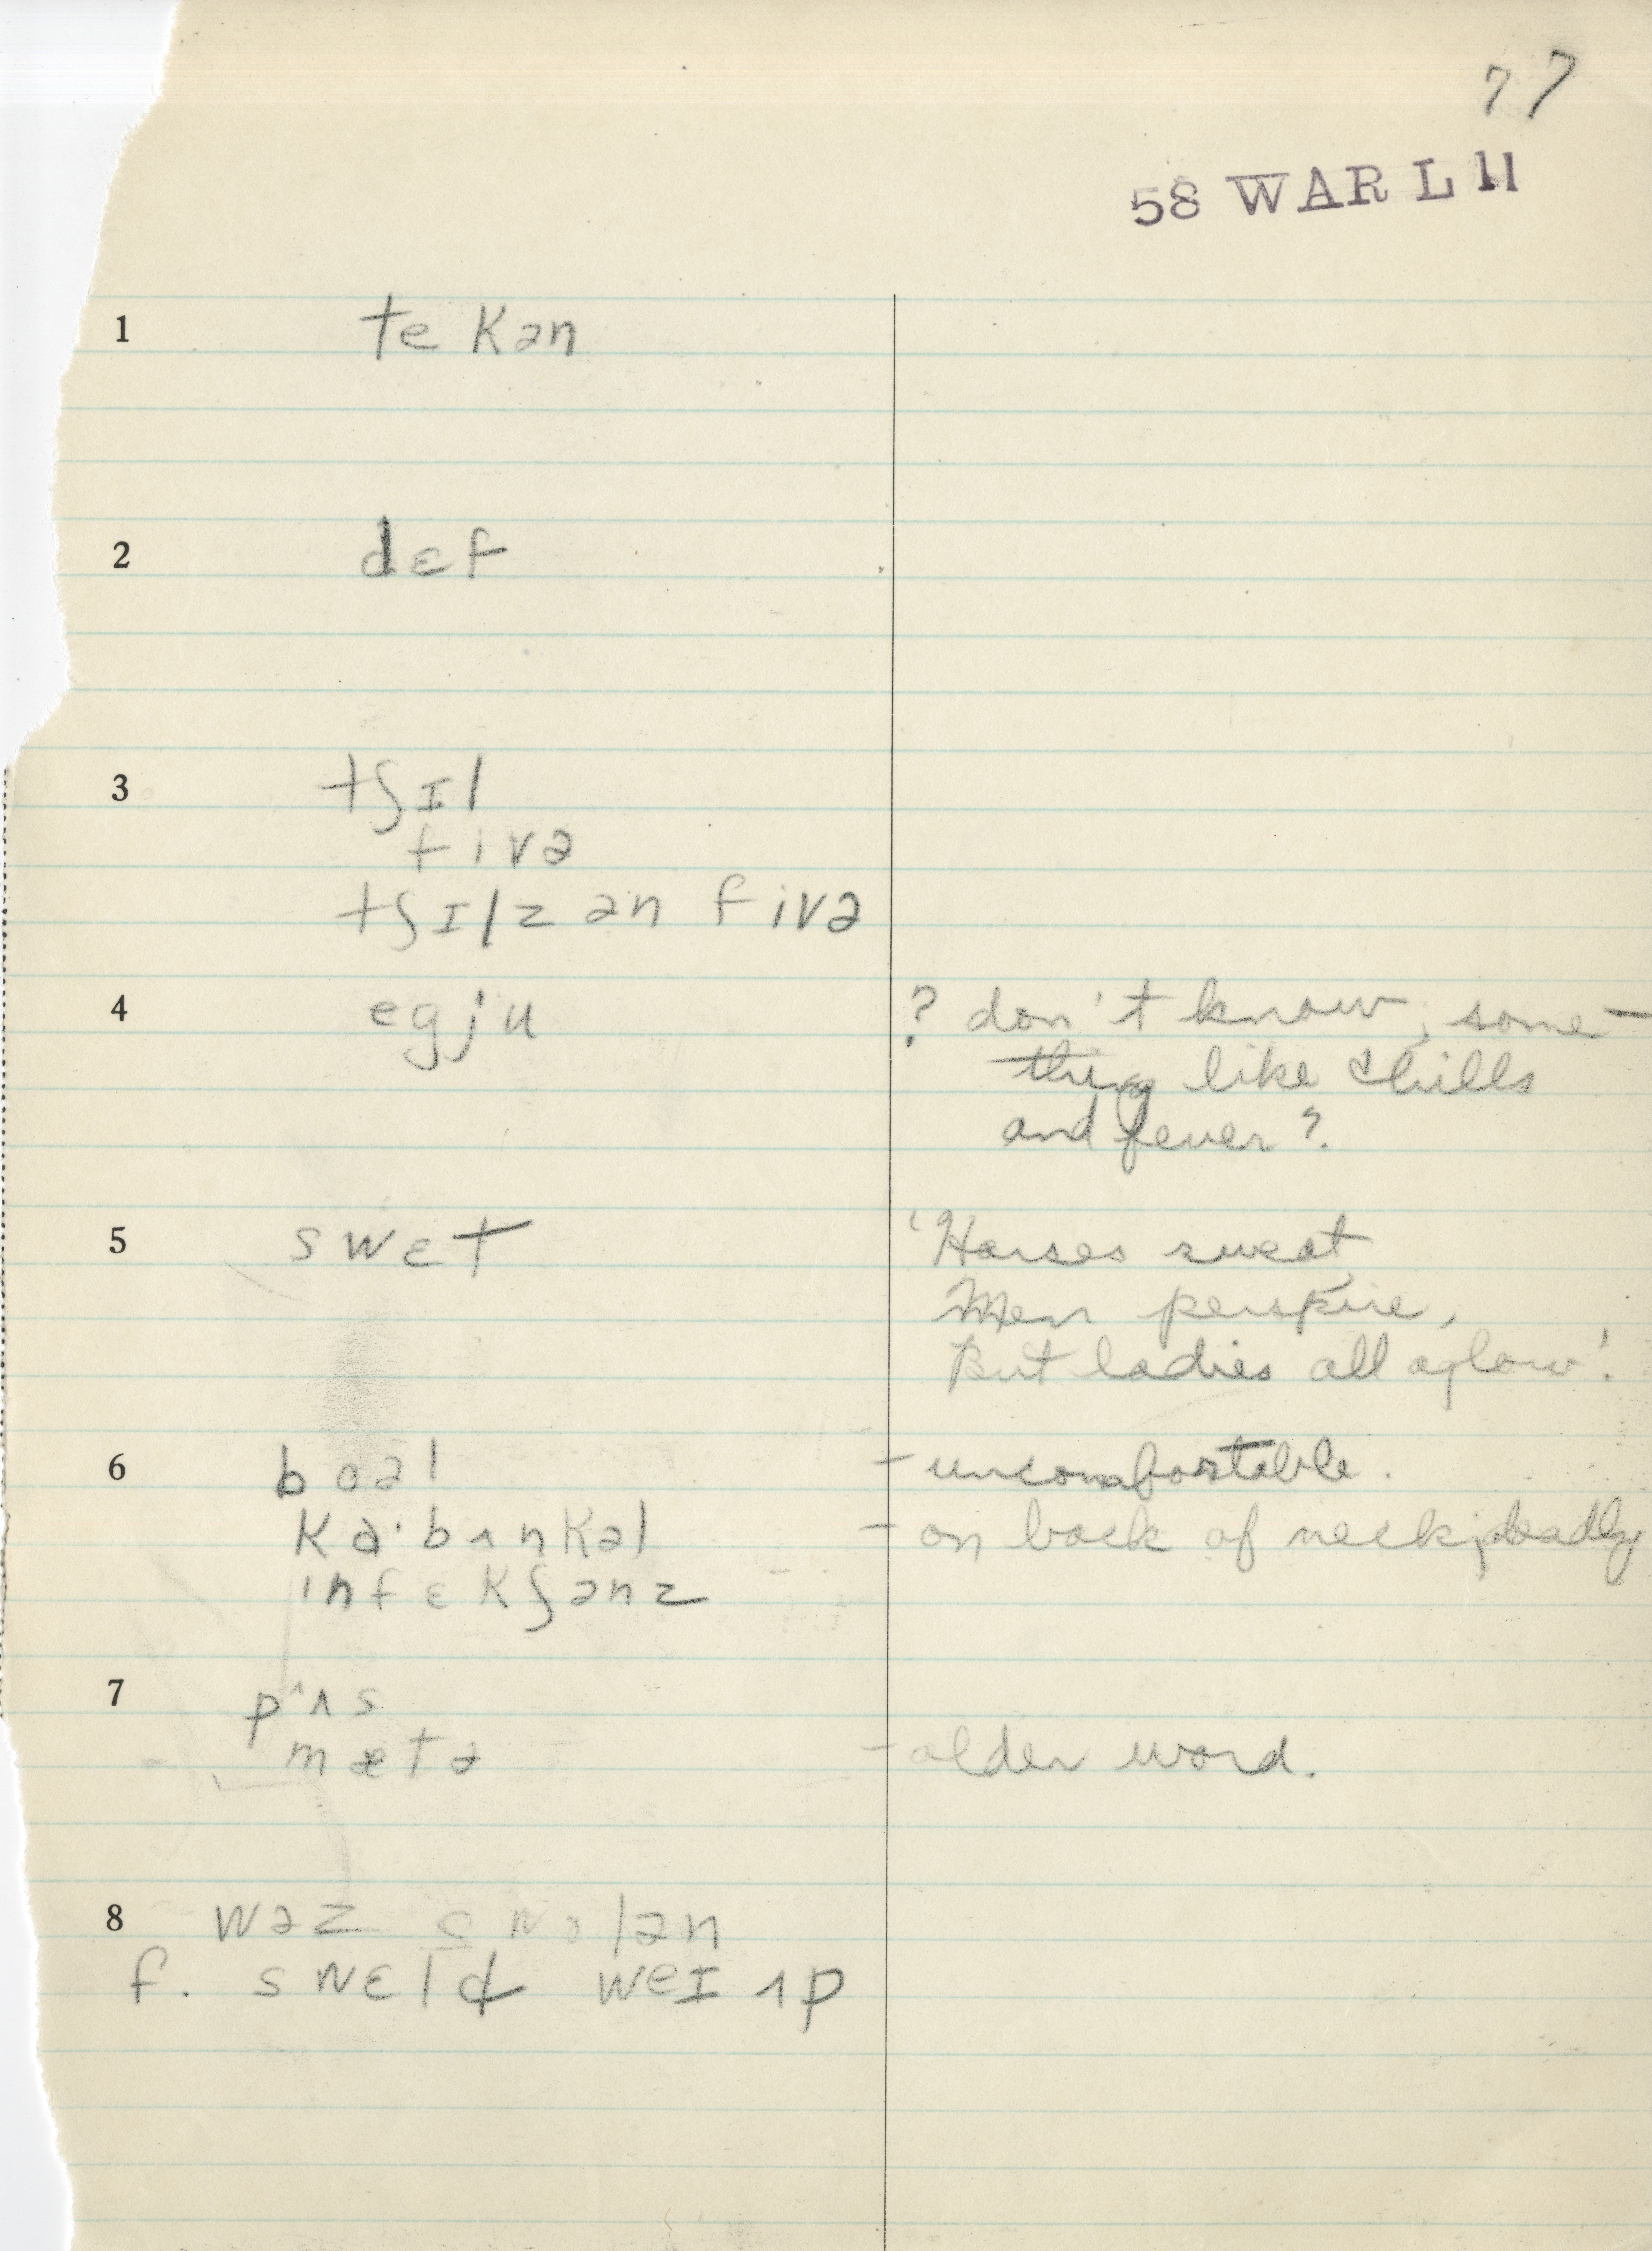 77
58 WAR L 11
1 te kən
2 dɛf
3 tʃɪl
fivə
tʃɪlz ən fivə
4 egju ? don't know, some-
thing like chills
and fever?
5 swɛt 'Horses sweat,
Men perspire,
But ladies all aglow'.
6 boəl - uncomfortable.
ka·bʌnkəl - on back of neck; deadly
infɛkʃənz
7 pʌs
mætə - older word.
8 wəz swolən
f. swɛld weɪ ʌp